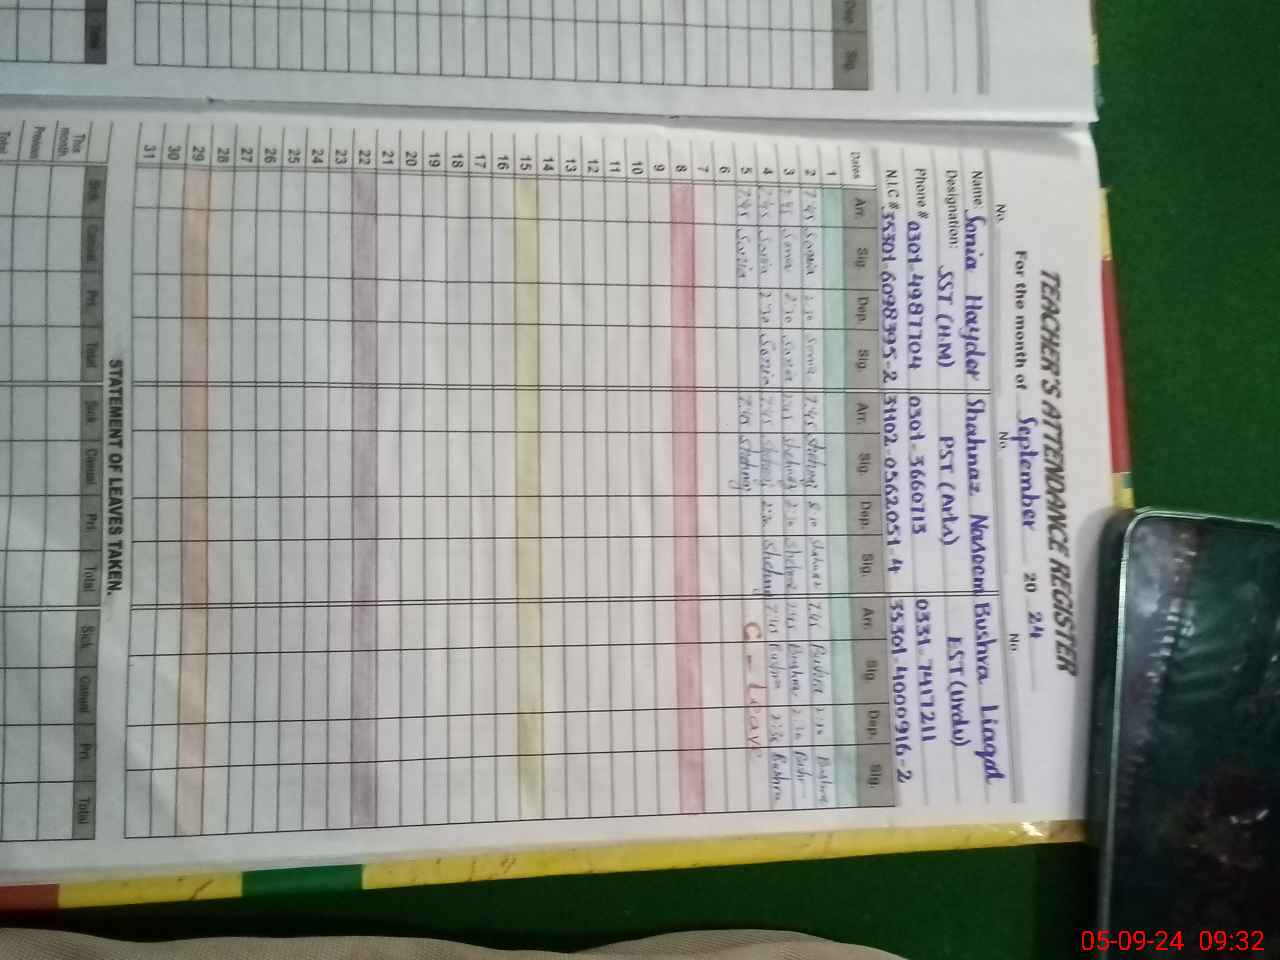 TEACHER'S ATTENDANCE REGISTER
For the month of September 20 24
No. No. No.
Name: Sonia Hayder Shahnaz Naseem Bushra Liaqat
Designation: SST (H.M) PST (Arts) EST (Urdu)
Phone # 0301-4987704 0301-3660713 0331-7417211
N.I.C # 35301-6098395-2 31102-0562051-4 35301-4000916-2
Dates Arr. Sig. Dep. Sig. Arr. Sig. Dep. Sig. Arr. Sig. Dep. Sig.
1
2 7:45 Sonia 2:30 Sonia 7:45 Shahnaz Shahnaz 7:45 Bushra 2:30 Bushra
3 7:45 Sonia 2:30 Sonia 7:45 Shahnaz 2:30 7:45 Bushra 2:30
4 7:45 Sonia 2:30 Sonia 7:45 2:30 7:45 Bushra 2:30 Bushra
5 7:45 Sonia 7:45 C - Leave
6
7
8
9
10
11
12
13
14
15
16
17
18
19
20
21
22
23
24
25
26
27
28
29
30
31
STATEMENT OF LEAVES TAKEN.
Sick Casual Pri. Total Sick Casual Pri. Total Sick Casual Pri. Total
This month
Previous
Total
Dep. Sig.
Total
05-09-24 09:32